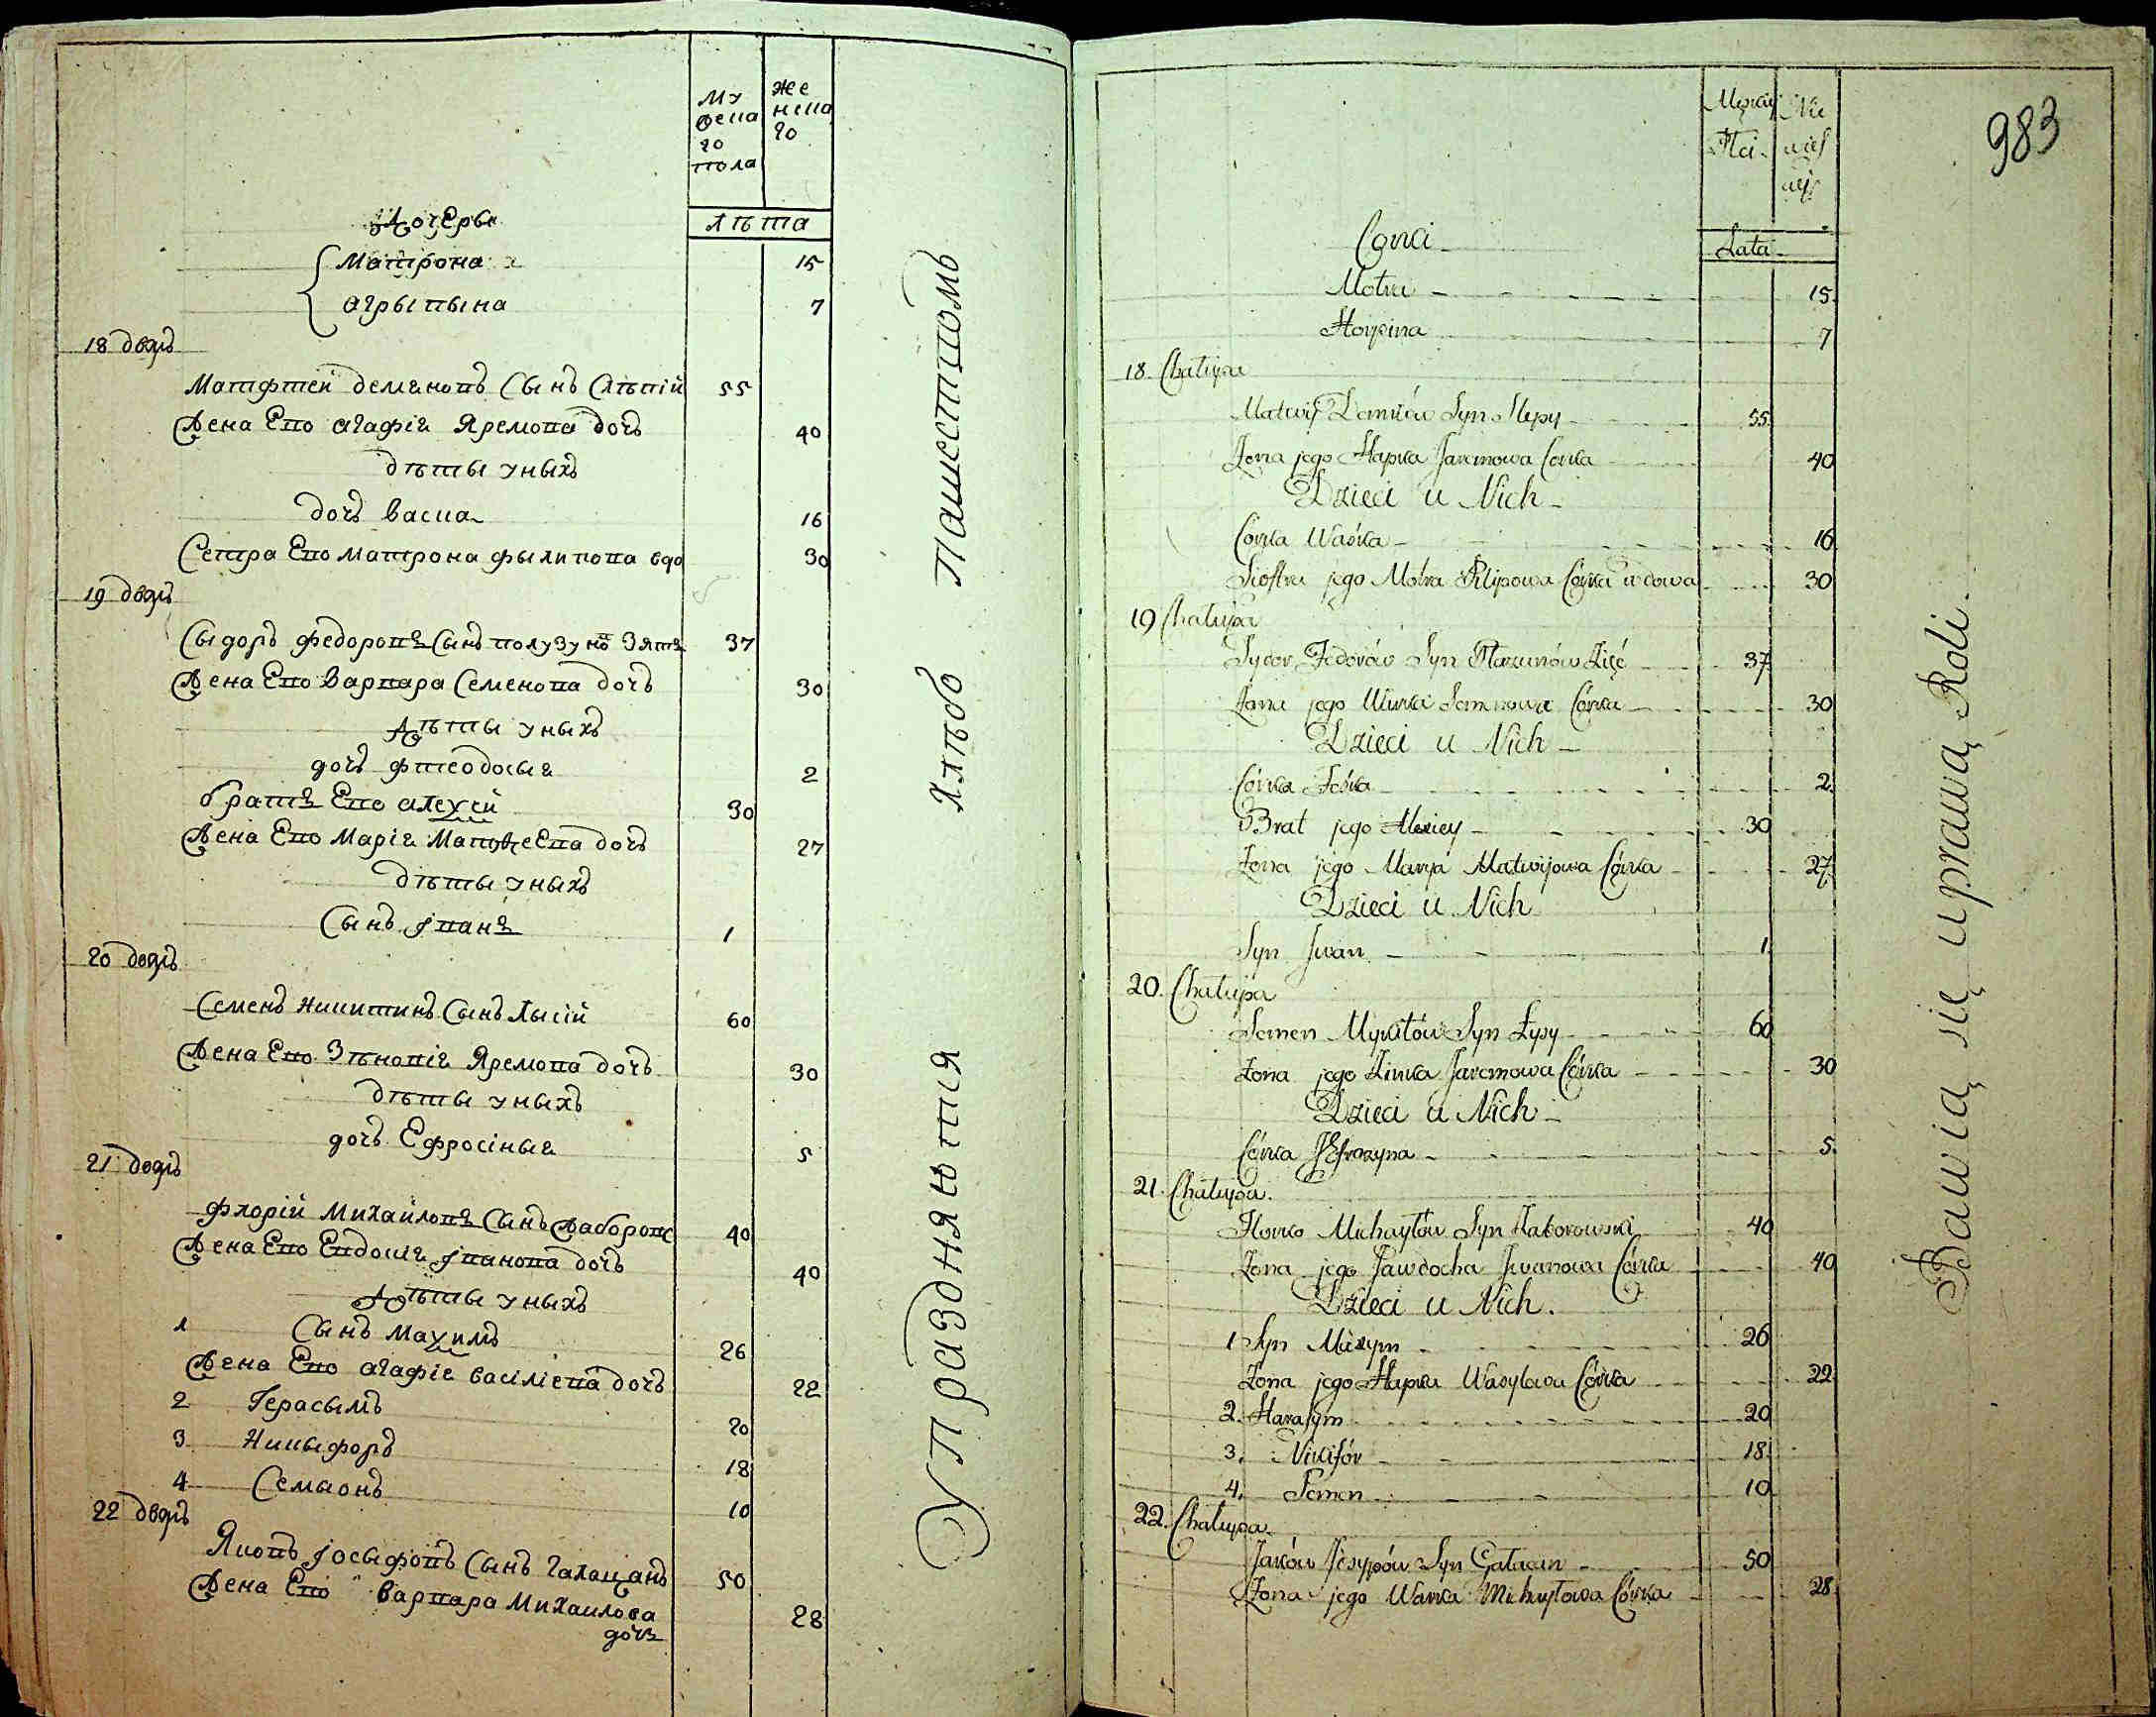 Му
жеска
го
пола
Же
нска
го
лѣта
Дочеры
Матрона 15
Агрыпына 7
18 дворъ
Матфтей Демяновъ Сынъ Слѣпій 55
Жена Ево Агафія Яремова дочь 40
дѣты у ныхъ
дочь Васка 16
Сестра Ево Матрона Фылипова вдо 30
19 дворъ
Сыдоръ Федоровъ Сынъ Зять 37
Жена Ево Варвара Семенова дочь 30
Дѣты у ныхъ
дочь Фтеодосыя 2
братъ Ево Алексей 30
Жена Ево Марія Матвеева дочь 27
дѣты у ныхъ
Сынъ Іванъ 1
20 дворъ
Семенъ Никитинъ Сынъ Лысій 60
Жена Ево Зѣновія Яремова дочь 30
дѣты у ныхъ
дочь Ефросіныя 5
21 дворъ
Флорій Михайловъ Сынъ 40
Жена Ево Евдокія Іванова дочь 40
Дѣты у ныхъ
1 Сынъ Максимъ 26
Жена Ево Агафія Василіева дочь 22
2 Герасымъ 20
3 Никыфоръ 18
4 Семыонъ 10
22 дворъ
Яковъ Іосыфовъ Сынъ Галацанъ 50
Жена Ево Варвара Михаилова 28
дочь
Упражнянытия Хлѣбо Пашеством
983
Męzki
Nie
wies
Lata
Corki
Motra 15
Horpina 7
18 Chałupa
Matwij Demków Syn Slepy 55
Zona jego Hapka Jaremowa Corka 40
Dzieci u Nich
Corka Waska 16
Siostra jego Motra Filipowa Córka wdowa 30
19 Chałupa
Sydor Fedorów Syn Zięć 37
Zona jego Warka Semenowa Córka 30
Dzieci u Nich
Córka Feśka 2
Brat jego Alexiey 30
Zona jego Marya Matwijowa Córka 27
Dzieci u Nich
Syn Iwan 1
20. Chałupa
Semen Mykitów Syn Łysy 60
Zona jego Zinka Jaremowa Córka 30
Dzieci u Nich
Córka Jefrozyna 5
21. Chałupa
Florko Michayłów Syn Zaborowski 40
Zona jego Jawdocha Iwanowa Córka 40
Dzieci u Nich.
1 Syn Maxym 26
Zona jego Hapka Wasylowa Córka 22
2. Harasym 20
3. Nikifór 18
4. Semen 10
22. Chałupa
Jaków Josypów Syn Gałacan 50
Zona jego Warka Michayłowa Córka 28
Bawią się uprawą Roli.